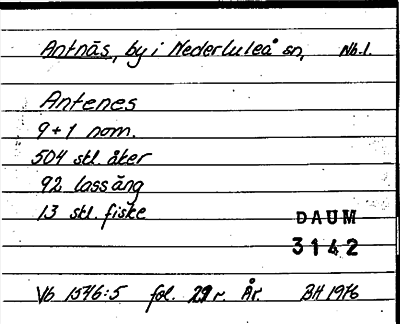 Antnäs, by i Nederluleå sn, Nb.l.
Antenes
9+1 nom.
504 skl. åker
92 lass äng
13 skl. fiske
DAUM
3142
Vb 1546:5 fol. 29 r. År. BH 1976